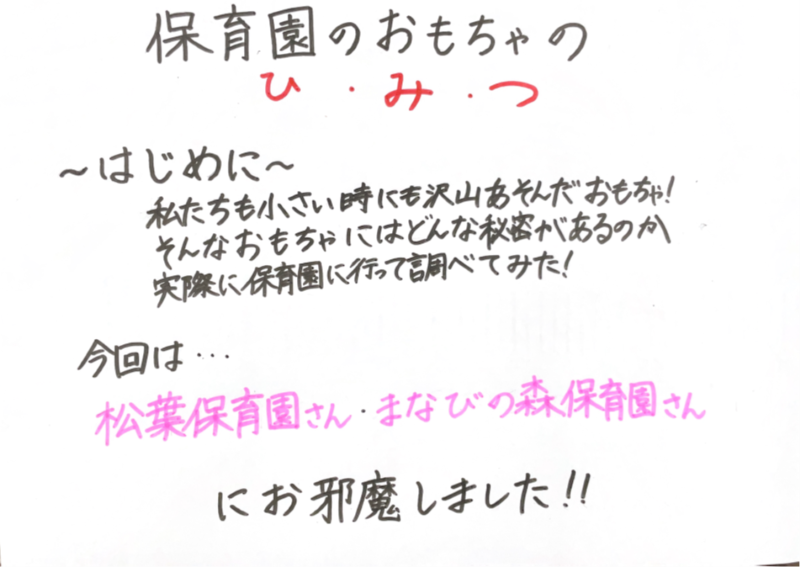 保育園のおもちゃの
ひ・み・つ
～はじめに～
私たちも小さい時にも沢山あそんだおもちゃ!
そんなおもちゃにはどんな秘密があるのか
実際に保育園に行って調べてみた!
今回は…
松葉保育園さん・まなびの森保育園さん
にお邪魔しました!!